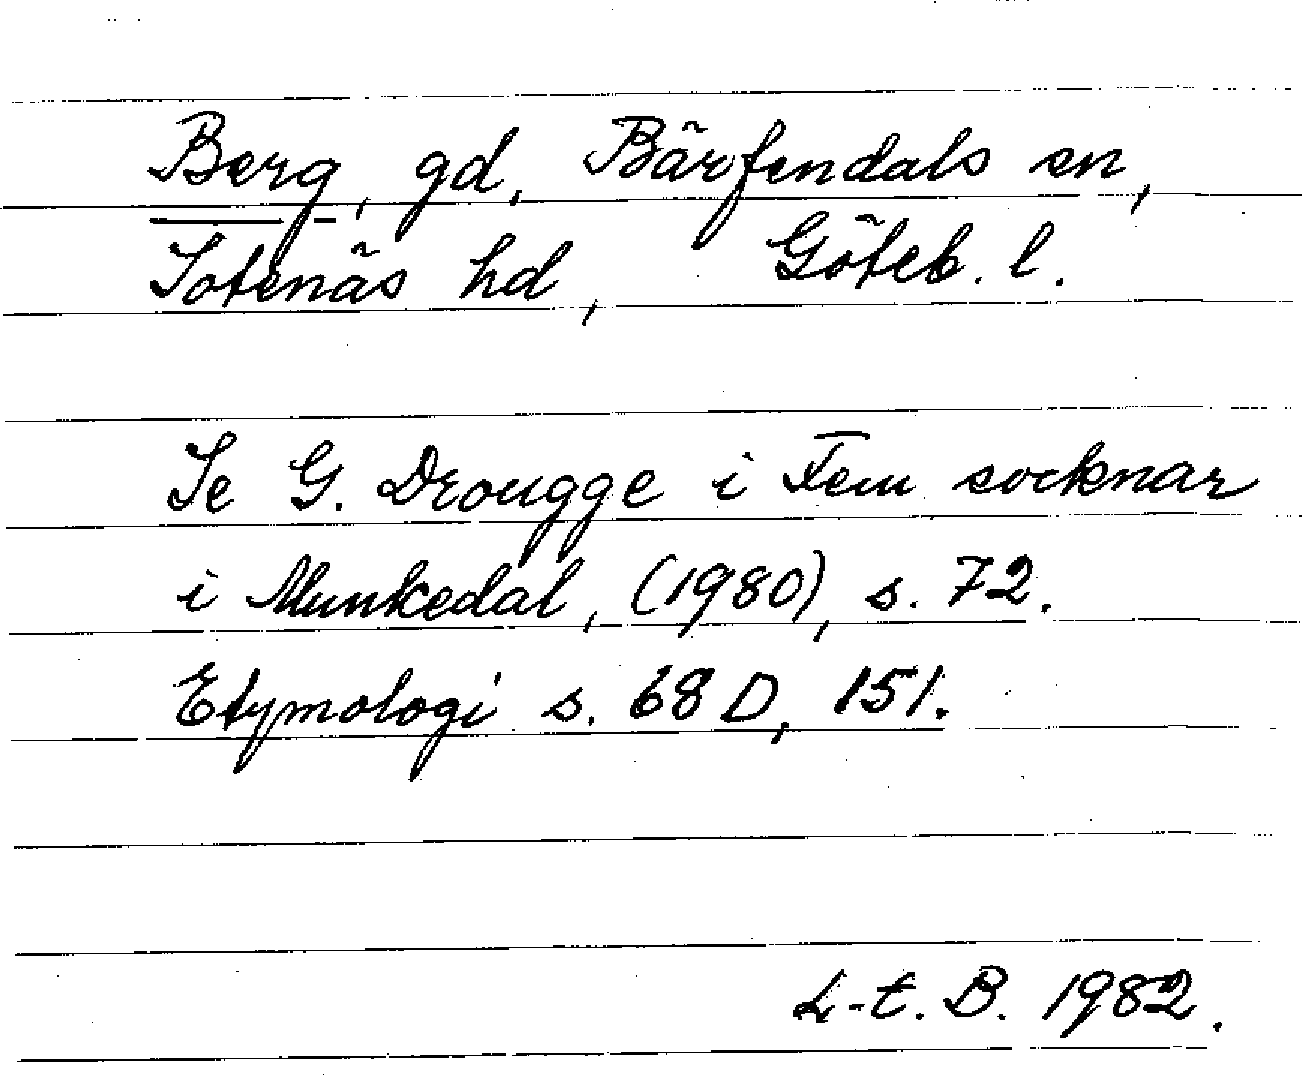 Berg, gd, Bärfendals sn,
Sotenäs hd, Göteb. l.
Se G. Drougge i Fem socknar
i Munkedal, (1980), s. 72.
Etymologi s. 68 D, 151.
L-t. B. 1982.